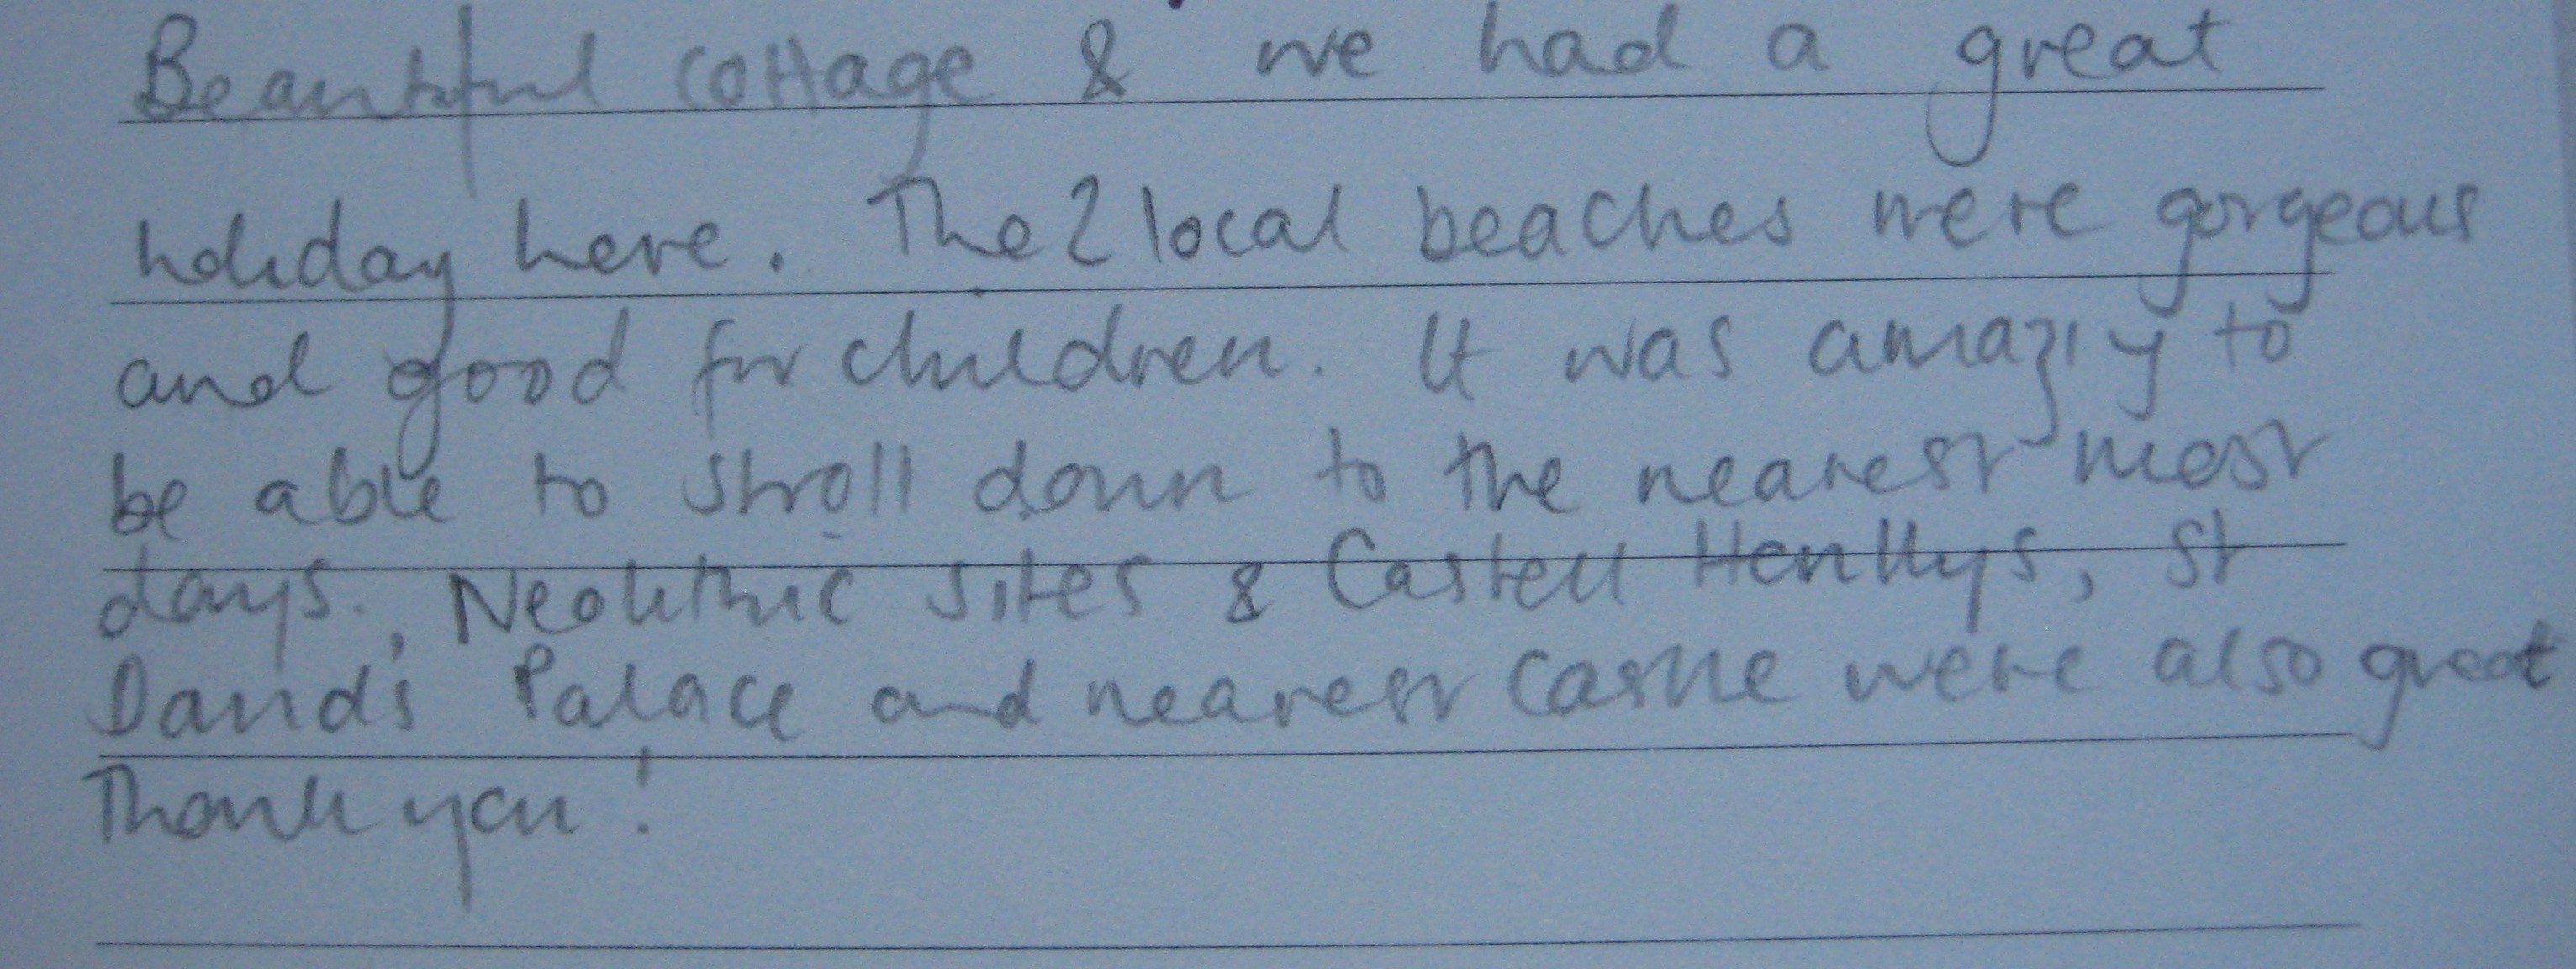 Beautiful cottage & we had a great
holiday here. The 2 local beaches were gorgeous
and good for children. It was amazing to
be able to stroll down to the nearest most
days. Neolithic sites & Castell Henllys, St
David's Palace and nearest castle were also great
Thank you!